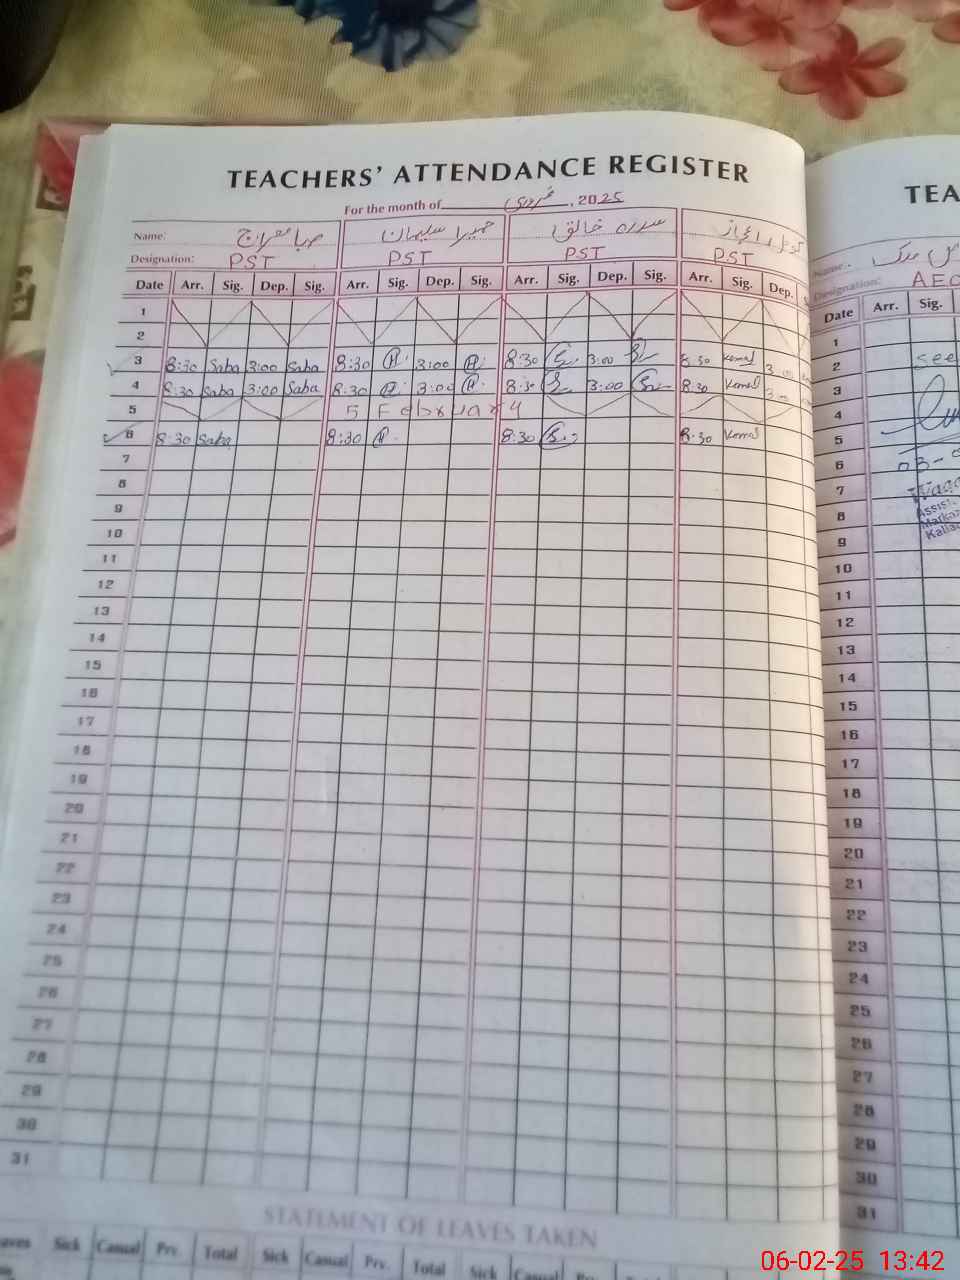 TEACHERS' ATTENDANCE REGISTER
For the month of فروری , 2025
Name: صبا معراج حمیرا سلیمان سدرہ خالق
Designation: PST PST PST PST
Date Arr. Sig. Dep. Sig. Arr. Sig. Dep. Sig. Arr. Sig. Dep. Sig. Arr. Sig. Dep.
1
2
3 8:30 Saba 3:00 Saba 8:30 3:00 8:30 3:00 8:30 Komal
4 8:30 Saba 3:00 Saba 8:30 3:00 8:30 3:00 8:30 Komal
5 5 February
6 8:30 Saba 8:30 8:30 8:30 Komal
7
8
9
10
11
12
13
14
15
16
17
18
19
20
21
22
23
24
25
26
27
28
29
30
31
STATEMENT OF LEAVES TAKEN
Sick Casual Prv. Total Sick Casual Prv. Total Sick Casual
TEA
Name:
Designation: AEO
Date Arr. Sig.
1
2 see
3
4
5
6 03-
7
8
9
10
11
12
13
14
15
16
17
18
19
20
21
22
23
24
25
26
27
28
29
30
31
06-02-25 13:42